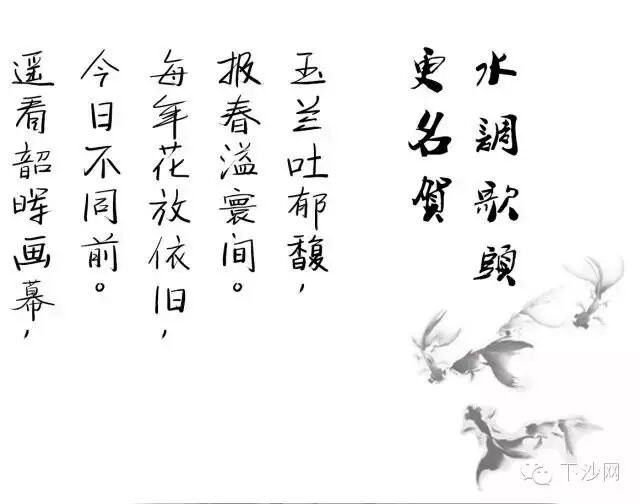 水調歌頭
更名賀
玉兰吐郁馥，
报春溢寰间。
每年花放依旧，
今日不同前。
遥看韶晖画幕，
下沙网